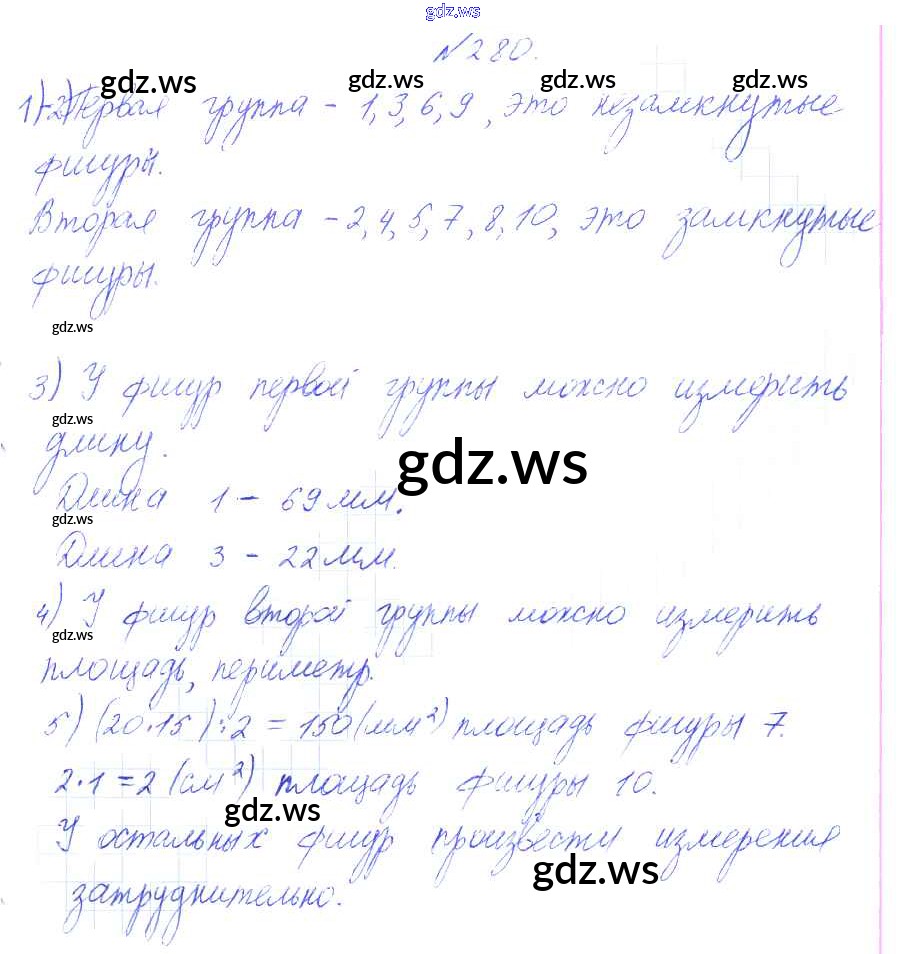 gdz.ws
№280.
gdz.ws gdz.ws gdz.ws
1)-2) Первая группа - 1, 3, 6, 9, это незамкнутые
фигуры.
Вторая группа - 2, 4, 5, 7, 8, 10, это замкнутые
фигуры.
gdz.ws
3) У фигур первой группы можно измерить
gdz.ws
длину.
gdz.ws
Длина 1 - 69 мм.
gdz.ws
Длина 3 - 22 мм.
4) У фигур второй группы можно измерить
gdz.ws
площадь, периметр.
5) (20·15):2 = 150 (мм²) площадь фигуры 7.
2·1 = 2 (см²) площадь фигуры 10.
gdz.ws
У остальных фигур произвести измерения
gdz.ws
затруднительно.